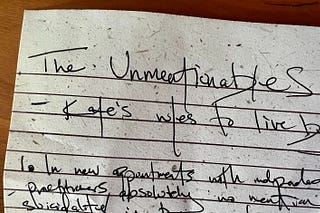 The Unmentionables
- Kate's rules to live by
1. In new appointments with independent
practitioners absolutely no mention